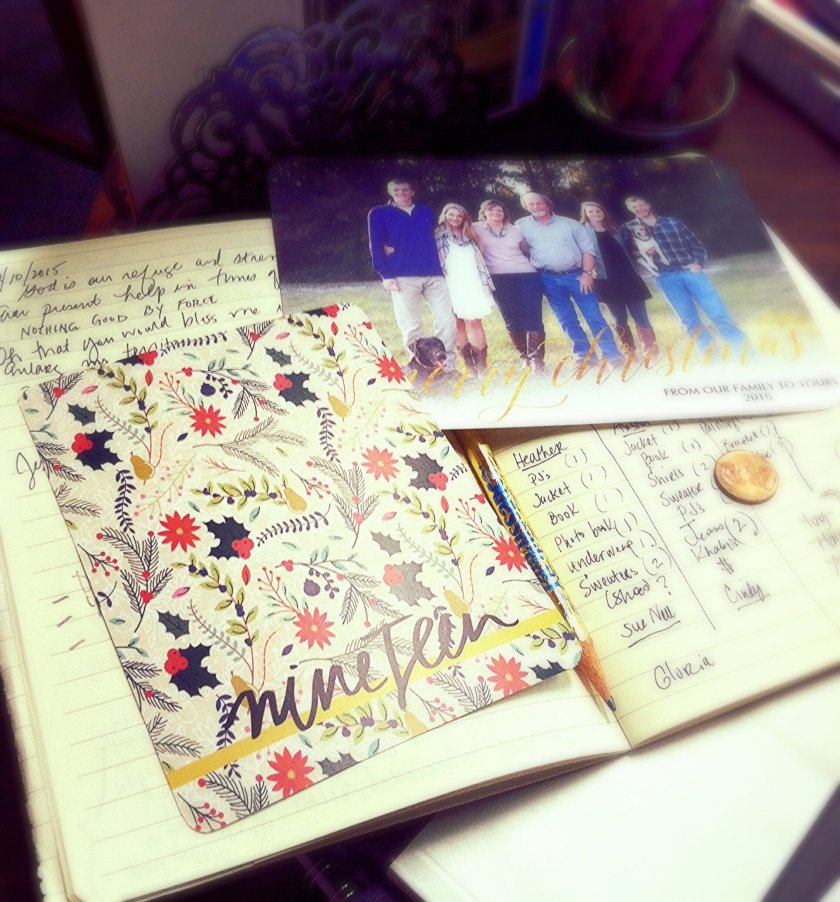 /10/2015
God is our refuge and
Ever present help in times
NOTHING GOOD BY FORCE
Oh that you would bless me
merry christmas
FROM OUR FAMILY TO YOURS
2015
nineteen
Heather
PJs (1)
Jacket (1)
Book (1)
Photo book (1)
underwear
Sweaters (2)
(shoes) ?
Sue Nell
Gloria
Jacket (1)
Book (1)
Shirts (2)
Sweater
PJs
Jeans (2)
$
Cindy